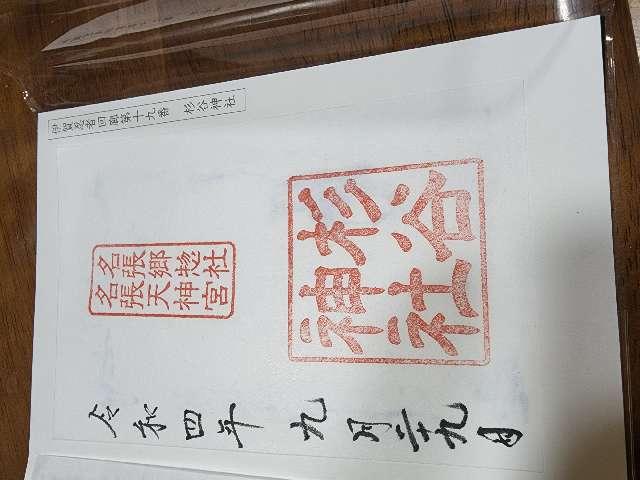 伊賀忍者回廊第十九番　杉谷神社
名張郷惣社
名張天神宮
杉谷
神社
令和四年九月二十九日